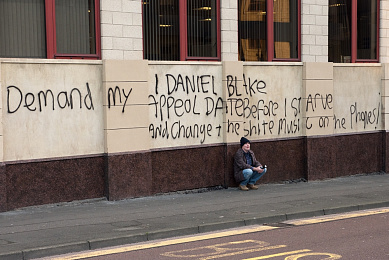 I DANIEL BLAKE
Demand my APPEAL DATE Before I STARVE
and change the shite MUSIC on the Phones!
BUS